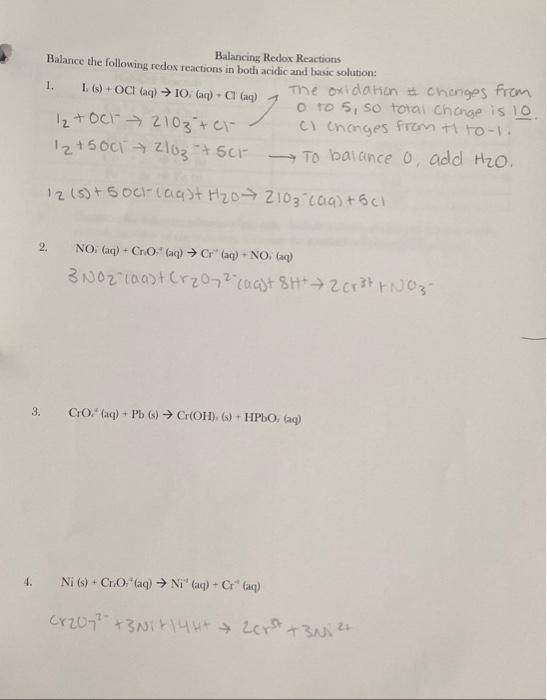 Balancing Redox Reactions
Balance the following redox reactions in both acidic and basic solution:
1. I₂ (s) + OCl⁻ (aq) → IO₃⁻ (aq) + Cl⁻ (aq)
The oxidation # changes from
0 to 5, so total change is 10.
Cl changes from +1 to -1.
I₂ + OCl⁻ → 2IO₃⁻ + Cl⁻
I₂ + 5OCl⁻ → 2IO₃⁻ + 5Cl⁻ → To balance O, add H₂O.
I₂ (s) + 5OCl⁻ (aq) + H₂O → 2IO₃⁻ (aq) + 5Cl
2. NO₂⁻ (aq) + Cr₂O₇⁻² (aq) → Cr⁺³ (aq) + NO₃⁻ (aq)
3NO₂⁻ (aq) + Cr₂O₇²⁻ (aq) + 8H⁺ → 2Cr³⁺ + NO₃⁻
3. CrO₄⁻² (aq) + Pb (s) → Cr(OH)₃ (s) + HPbO₂⁻ (aq)
4. Ni (s) + Cr₂O₇⁻² (aq) → Ni⁺² (aq) + Cr⁺³ (aq)
Cr₂O₇²⁻ + 3Ni + 14H⁺ → 2Cr³⁺ + 3Ni²⁺